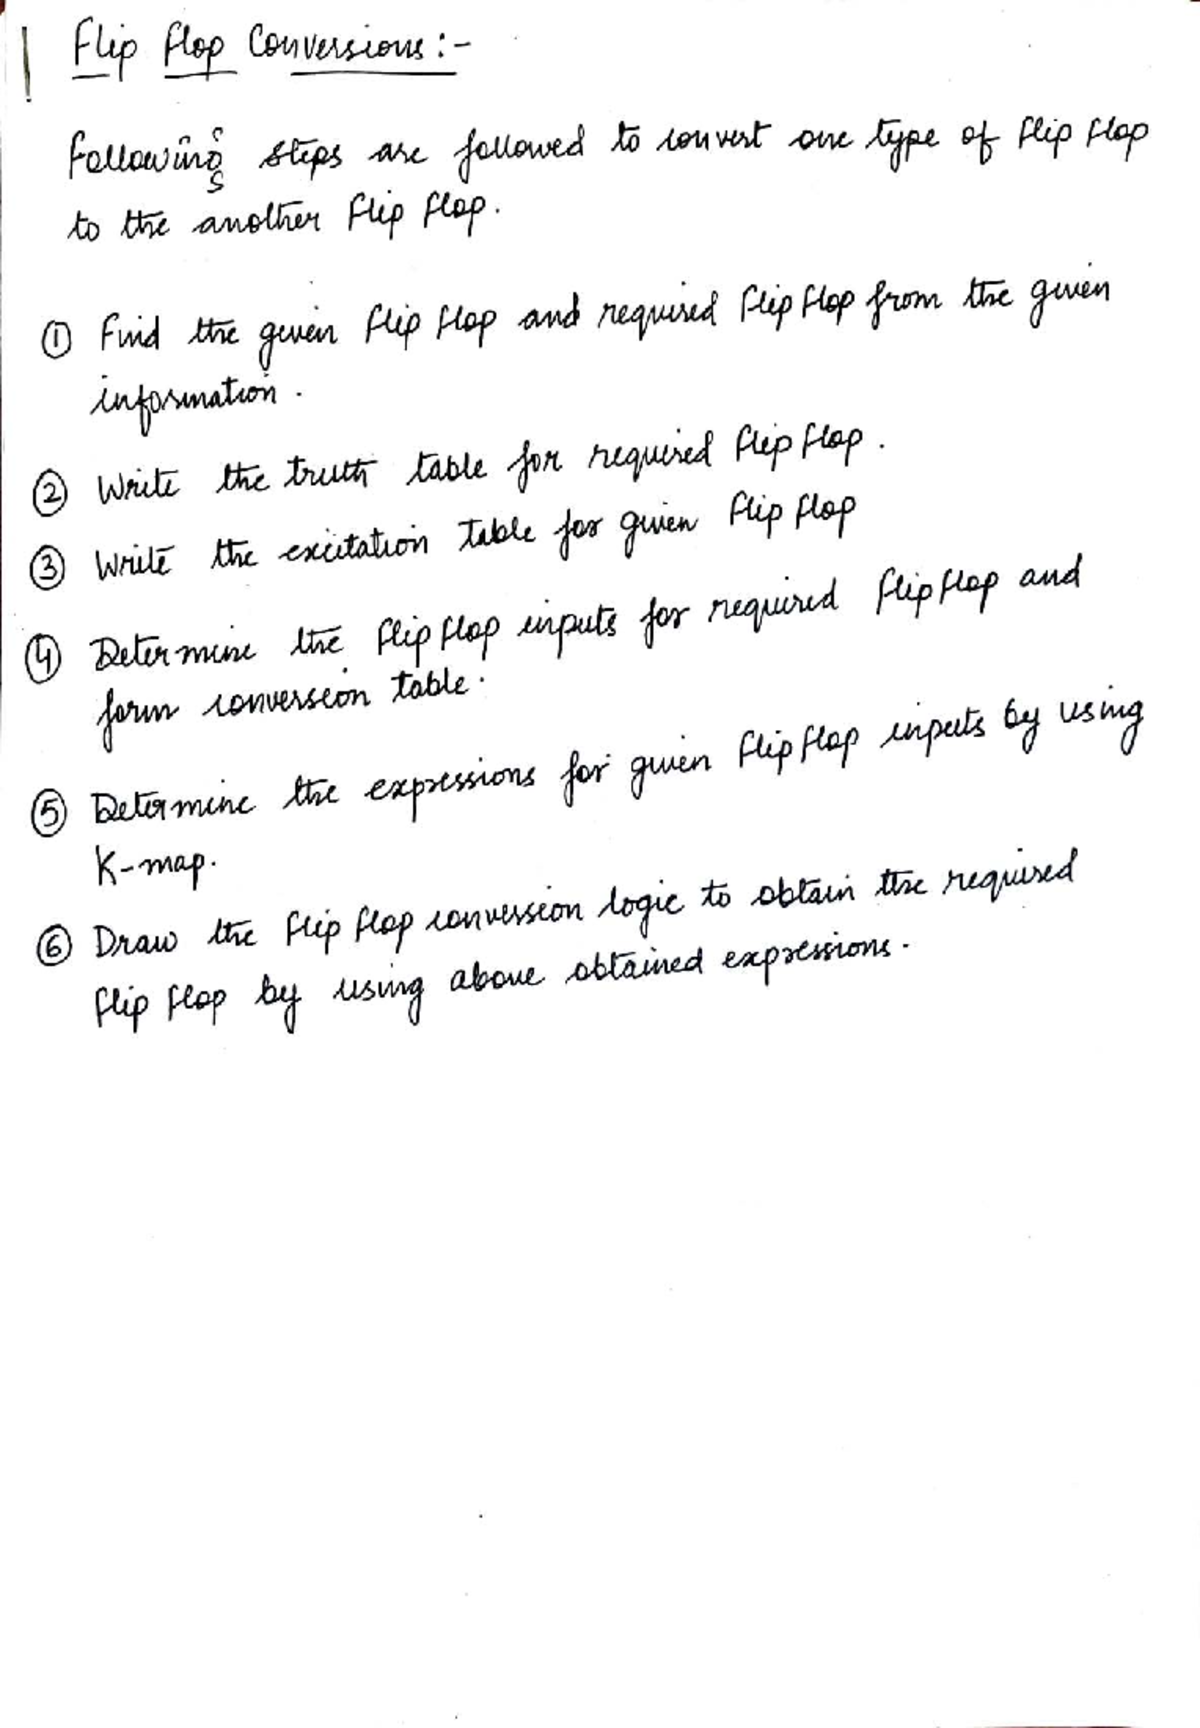 Flip flop Conversions:-
Following steps are followed to convert one type of flip flop
to the another flip flop.
① Find the given flip flop and required flip flop from the given
information.
② Write the truth table for required flip flop.
③ Write the excitation table for given flip flop
④ Determine the flip flop inputs for required flip flop and
form conversion table.
⑤ Determine the expressions for given flip flop inputs by using
K-map.
⑥ Draw the flip flop conversion logic to obtain the required
flip flop by using above obtained expressions.